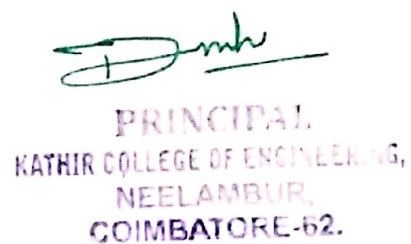 PRINCIPAL
KATHIR COLLEGE OF ENGINEERING,
NEELAMBUR,
COIMBATORE-62.